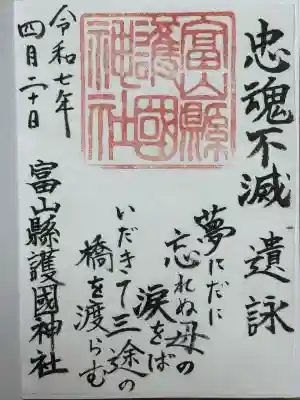 忠魂不滅
遺詠
夢にだに
忘れぬ母の
涙をば
いだきて三途の
橋を渡らむ
富山縣
護國
神社
富山縣護國神社
令和七年
四月二十日